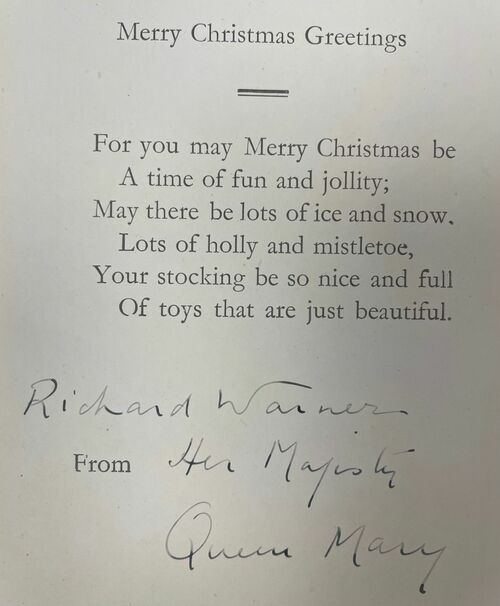 Merry Christmas Greetings
For you may Merry Christmas be
A time of fun and jollity;
May there be lots of ice and snow.
Lots of holly and mistletoe,
Your stocking be so nice and full
Of toys that are just beautiful.
Richard Warner
From Her Majesty
Queen Mary